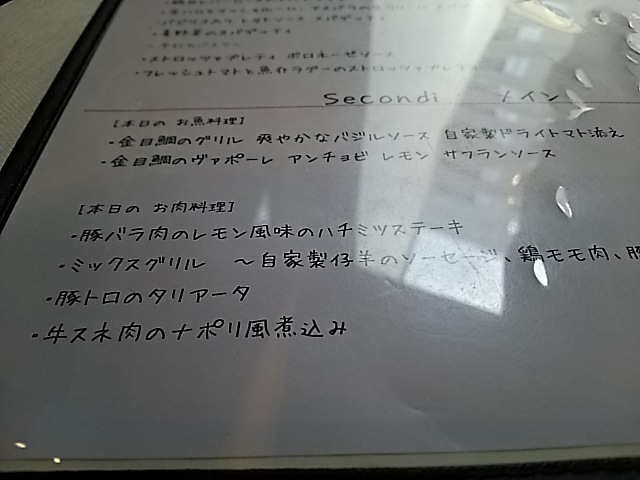 トマトソース スパゲッティ
・夏野菜のスパゲッティ
・ストロッツァプレティ ボロネーゼソース
・フレッシュトマトと魚介ラグーのストロッツァプレティ
Secondi メイン
[本日の お魚料理]
・金目鯛のグリル 爽やかなバジルソース 自家製ドライトマト添え
・金目鯛のヴァポーレ アンチョビ レモン サフランソース
[本日の お肉料理]
・豚バラ肉のレモン風味のハチミツステーキ
・ミックスグリル ～自家製仔羊のソーセージ、鶏モモ肉、豚
・豚トロのタリアータ
・牛スネ肉のナポリ風煮込み